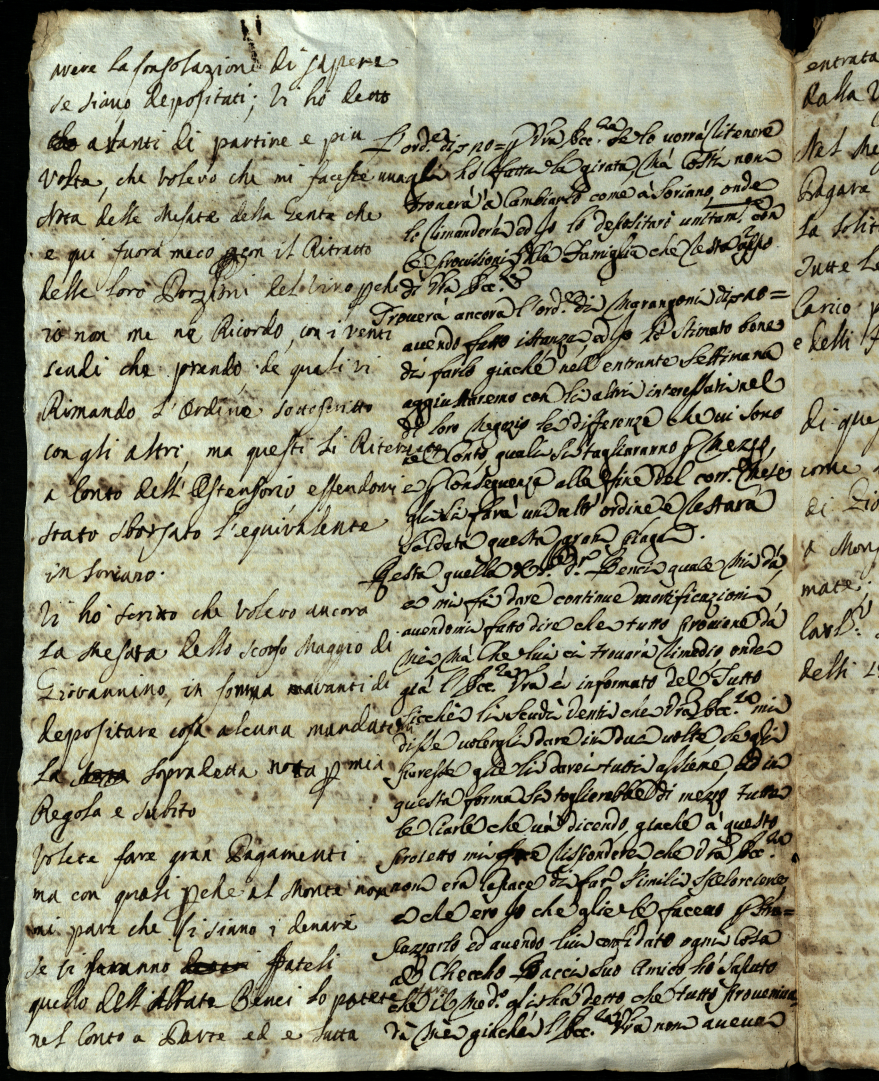 avere la consolazione di sapere
se siano depositati; Vi ho detto
avanti di partire e piu
Volte, che volevo che mi faceste una
Nota delle Mesate della Gente che
e qui fuora meco con il Ritratto
delle loro Porzioni del Vino pche
io non me ne Ricordo, con i venti
scudi che prendo, de quali vi
Rimando l'Ordine sottoscritto
con gli altri, ma questi li Riterrete
a Conto dell'Ostensorio essendomi
stato sborsato l'equivalente
in Soriano.
Vi ho scritto che volevo ancora
la Mesata dello scorso Maggio di
Giovannino, in somma avanti di
depositare cosa alcuna mandatemi
la sopradetta nota p mia
Regola e subito
Volete fare gran Pagamenti
ma con quali pche al Monte non
mi pare che ci siano i denari
se ci saranno fateli
quello dell'Abbate Benci lo potete
nel Conto a Parte ed e tutta
L'ord.e p Vra Ecc.za se lo vorrà ritenere
gli hò fatta la girata, mà costì non
troverà à Cambiarlo come à Soriano, onde
lo rimanderà ed Io lo depositarò unitam.e con
le provisioni della Famiglia che
di Vra Ecc.za
Troverà ancora l'ord.e di Marangoni
avendo fatto istanza, ed Io hò stimato bene
di farlo giachè nell'entrante Settimana
aggiustaremo con li altri interessati nel
di loro Negozio le differenze che vi sono
ne Conto quali si tagliaranno p Mezzo,
e p conseguenza alla fine del corr.e Mese
gli si farà un altr'ordine e restarà
saldata questa gran Piaga.
Resta quella del Benci quale mi dà,
e mi fà dare continue mortificazioni
avendomi fatto dire che tutto proviene da
Mè Mà che lui ci trovarà rimedio onde
già l'Ecc.za Vra è informato del tutto
sicchè li scudi venti che Vra Ecc.za mi
disse volergli dare in due volte, se gli
paresse glie li darei tutti assieme, ed in
questa forma si togliarebbe di mezzo tutte
le Ciarle che và dicendo, giachè à questo
proposto mi fece rispondere che Vra Ecc.za
non era capace di far simili
e che ero Io che glie le facevo p
strapazzarlo ed avendo lui confidato ogni cosa
à Checcho Bacci suo Amico hò saputo
che il Med.o gli hà detto che tutto proveniva
dà Mè giachè l'Ecc.za Vra non aveva
entrata
dalla
Pagare
la solit
tutte le
Carico
e delli
di ques
come
di Gio
a Mons
delli